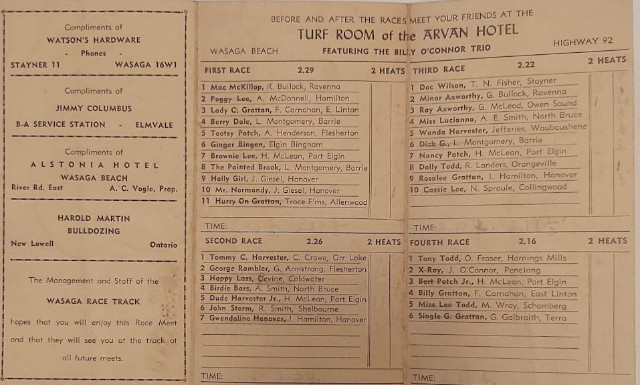 Compliments of
WATSON'S HARDWARE
- Phones -
STAYNER 11 WASAGA 16W1
Compliments of
JIMMY COLUMBUS
B-A SERVICE STATION - ELMVALE
Compliments of
ALSTONIA HOTEL
WASAGA BEACH
River Rd. East A. C. Vogle, Prop.
HAROLD MARTIN
BULLDOZING
New Lowell Ontario
The Management and Staff of the
WASAGA RACE TRACK
hopes that you will enjoy this Race Meet
and that they will see you at the track at
all future meets.
BEFORE AND AFTER THE RACES MEET YOUR FRIENDS AT THE
TURF ROOM of the ARVAN HOTEL
WASAGA BEACH FEATURING THE BILLY O'CONNOR TRIO HIGHWAY 92
FIRST RACE 2.29 2 HEATS
1 Mac McKillop, R. Bullock, Ravenna
2 Peggy Lee, A. McDonnell, Hamilton
3 Lady C. Grattan, F. Carnahan, E. Linton
4 Berry Dale, L. Montgomery, Barrie
5 Tootsy Patch, A. Henderson, Flesherton
6 Ginger Bingen, Elgin Bingham
7 Brownie Lee, H. McLean, Port Elgin
8 The Painted Brook, L. Montgomery, Barrie
9 Holly Girl, J. Giesel, Hanover
10 Mr. Normandy, J. Giesel, Hanover
11 Hurry On Grattan, Trace Elms, Allenwood
TIME:
SECOND RACE 2.26 2 HEATS
1 Tommy C. Harvester, C. Crowe, Orr Lake
2 George Rambler, G. Armstrong, Flesherton
3 Happy Lass, Devine, Coldwater
4 Birdie Bars, A. Smith, North Bruce
5 Dude Harvester Jr., H. McLean, Port Elgin
6 John Storm, R. Smith, Shelbourne
7 Gwendoline Hanover, J. Hamilton, Hanover
TIME:
THIRD RACE 2.22 2 HEATS
1 Doc Wilson, T. N. Fisher, Stayner
2 Minor Axworthy, G. Bullock, Ravenna
3 Ray Axworthy, G. McLeod, Owen Sound
4 Miss Lucianna, A. E. Smith, North Bruce
5 Wanda Harvester, Jefferies, Waubaushene
6 Dick G., L. Montgomery, Barrie
7 Nancy Patch, H. McLean, Port Elgin
8 Dolly Todd, R. Landers, Orangeville
9 Rosalee Grattan, J. Hamilton, Hanover
10 Cassie Lee, N. Sproule, Collingwood
TIME:
FOURTH RACE 2.16 2 HEATS
1 Tony Todd, O. Fraser, Hornings Mills
2 X-Ray, J. O'Connor, Penetang
3 Bert Patch Jr., H. McLean, Port Elgin
4 Billy Grattan, F. Carnahan, East Linton
5 Miss Lee Todd, M. Wray, Schomberg
6 Single G. Grattan, G. Galbraith, Terra
TIME: